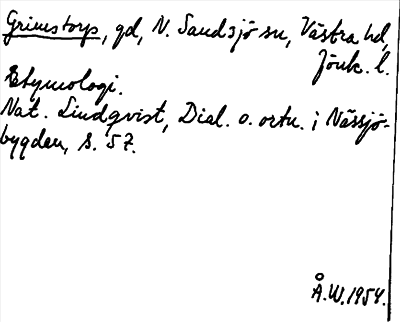 Grimstorp, gd, N. Sandsjö sn, Västra hd,
Jönk. l.
Etymologi.
Nat. Lindqvist, Dial. o. ortn. i Nässjö-
bygden, s. 57.
Å.W. 1954.